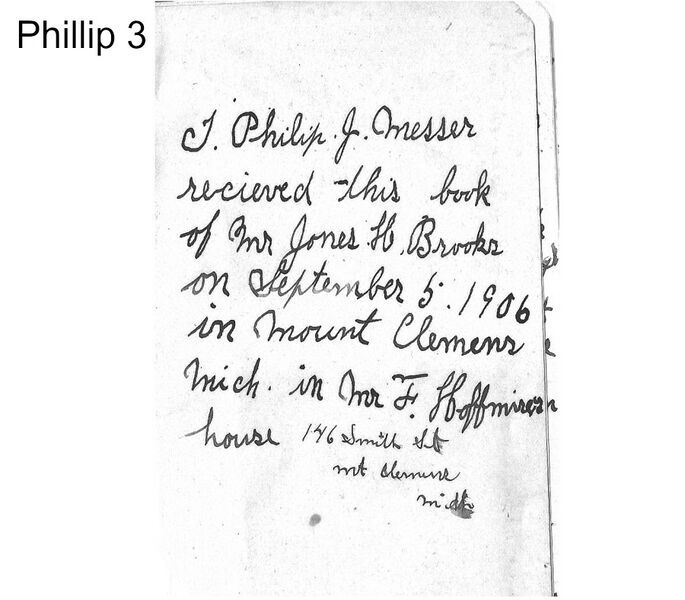 Phillip 3
I. Philip. J. Messer
recieved this book
of Mr Jones. H. Brooks
on September 5. 1906
in Mount Clemens
Mich. in Mr F.
house 146 Smith St
mt Clemens
Mich